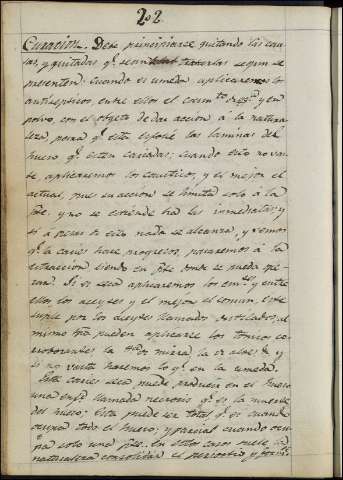 202
Curacion. Debe principiarse quitando las cau-
sas, y quitadas q.e sean tratarlas segun se
presenten. Cuando es umeda aplicaremos los
antisepticos, entre ellos el y en
polvo, con el objeto de dar accion á la natura-
leza, para q.e esta esfolie las laminas del
hueso q.e esten cariadas; cuando esto no vas-
te aplicaremos los causticos, y el mejor el
actual, pues su accion se limita solo á la
p.te y no se estiende ha las inmediatas; y
si á pesar de esto nada se alcanza, y vemos
q.e la caries hace progresos, pasaremos á la
estraccion siendo en p.te donde se pueda ope-
rar. Si es seca aplicaremos los y entre
ellos, los aceytes y el mejor el comun, este
suple por los aceytes llamados destilados; al
mismo t̃po pueden aplicarse los tonicos co-
rroborantes la mirra, la y
si no vasta haremos lo q.e en la umeda.
Esta caries seca puede producir en el hueso
una enf.d llamada necrosis q.e es la muerte
del hueso: Esta puede ser total q.e es cuando
ocupa todo el hueso; y parcial cuando ocu-
pa solo una p.te. En estos casos suele la
naturaleza consolidar el periostio y form.